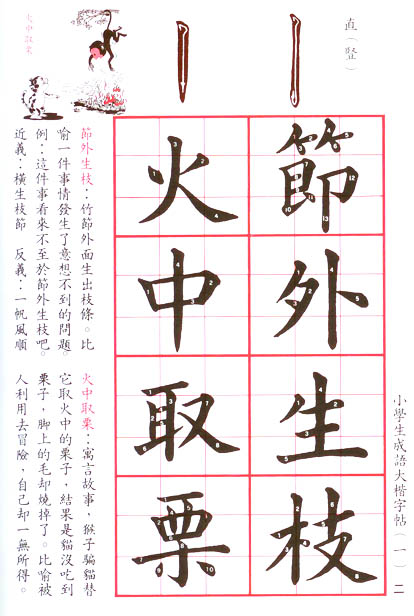 小學生成語大楷字帖(一) 二
直(豎)
節外生枝
火中取栗
火中取栗
節外生枝:竹節外面生出枝條。比
喻一件事情發生了意想不到的問題。
例:這件事看來不至於節外生枝吧。
近義:橫生枝節 反義:一帆風順
火中取栗:寓言故事,猴子騙貓替
它取火中的栗子,結果是貓沒吃到
栗子,腳上的毛却燒掉了。比喻被
人利用去冒險,自己却一無所得。